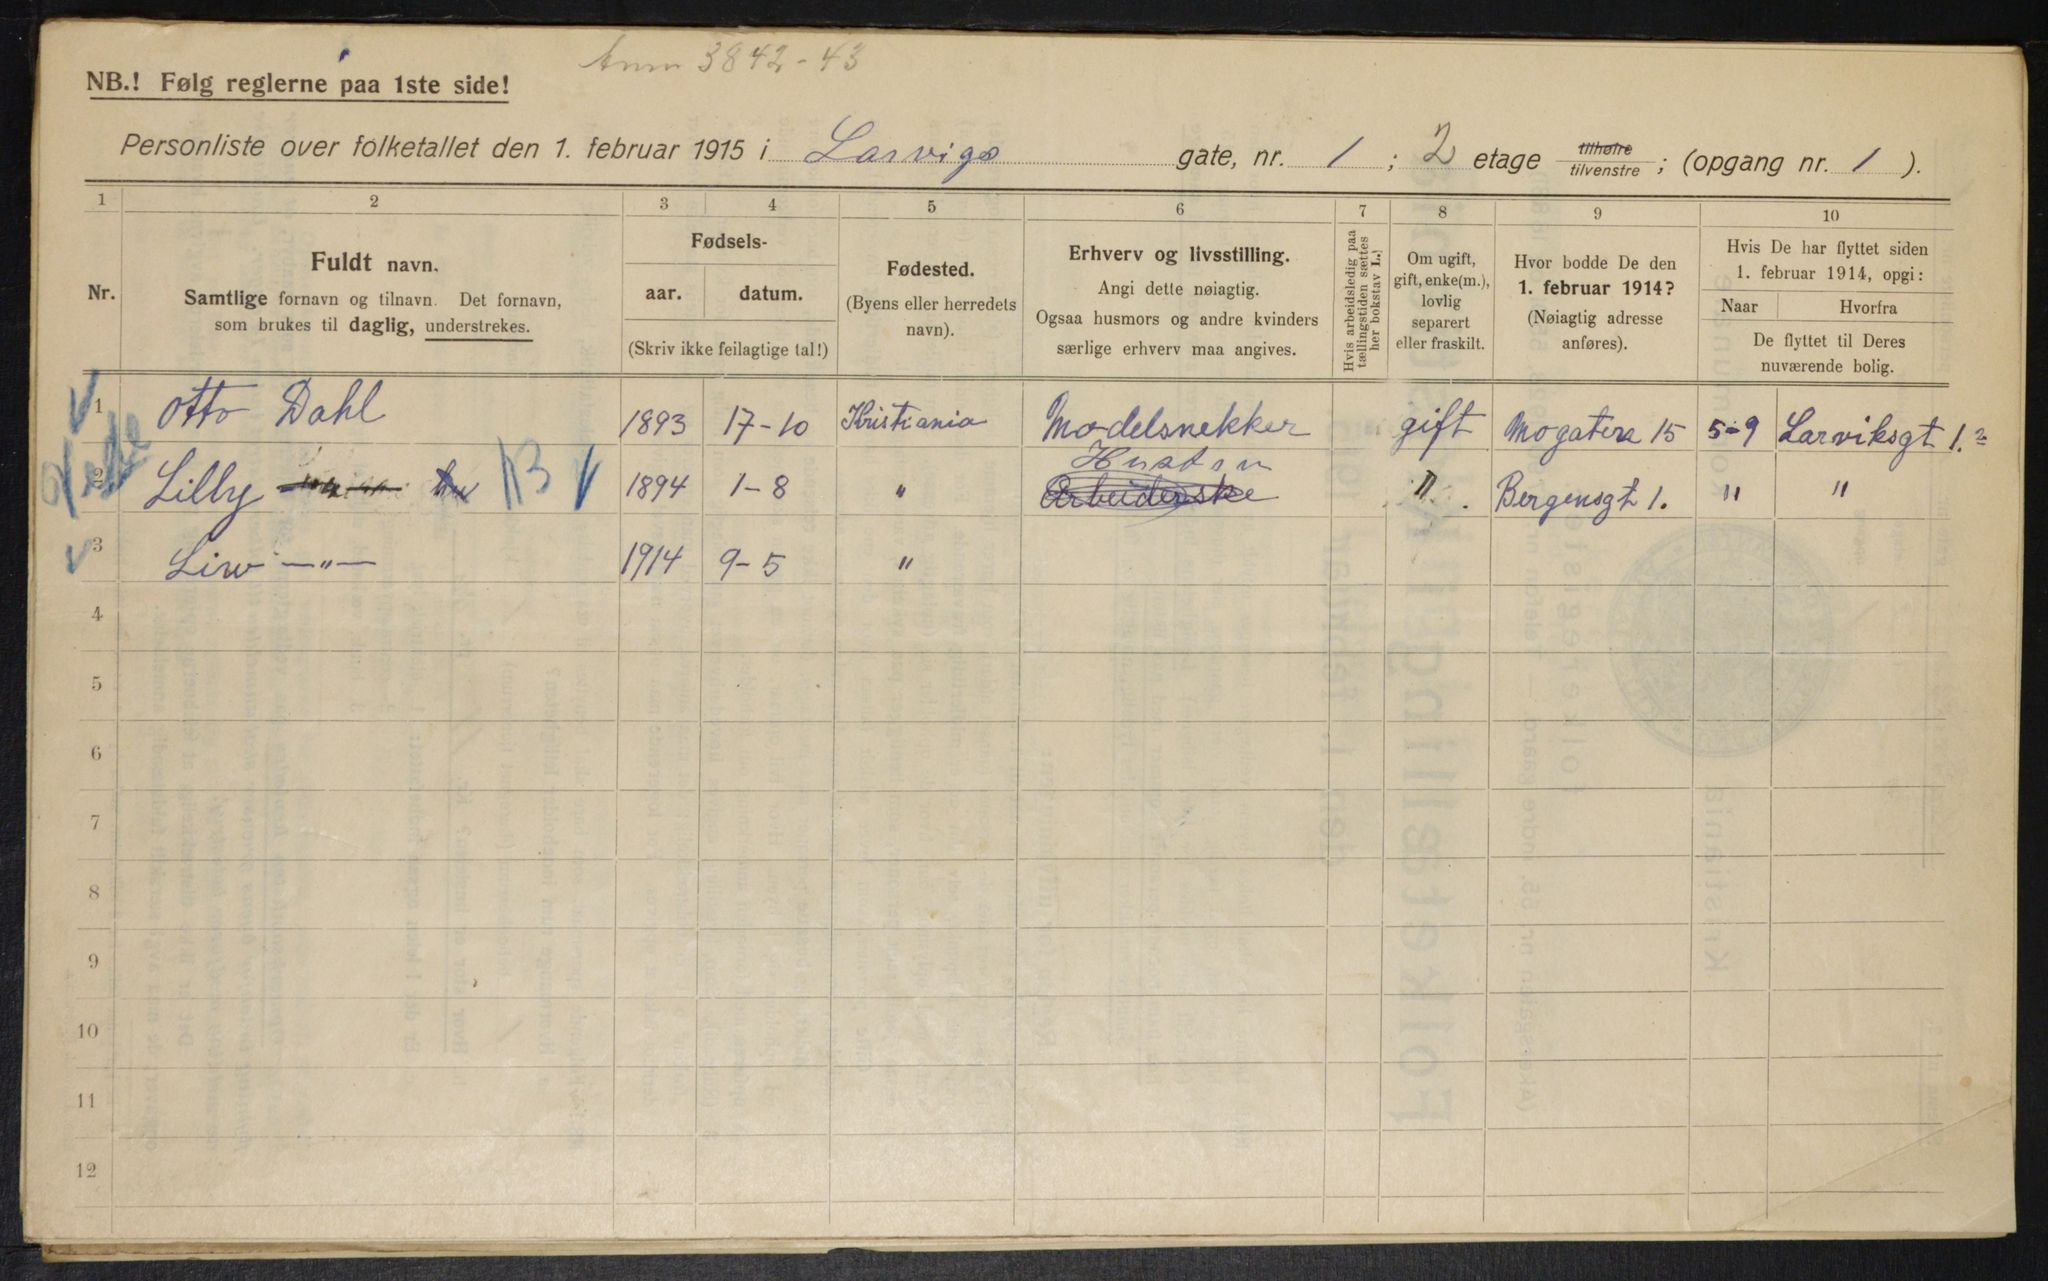 Anm 3842-43
NB.! Følg reglerne paa 1ste side!
Personliste over folketallet den 1. februar 1915 i Larvigs gate, nr. 1 ; 2 etage tilhøire tilvenstre ; (opgang nr. 1 ).
1 2 3 4 5 6 7 8 9 10
Nr.
Fuldt navn.
Samtlige fornavn og tilnavn. Det fornavn,
som brukes til daglig, understrekes.
Fødsels-
aar. datum.
(Skriv ikke feilagtige tal!)
Fødested.
(Byens eller herredets
navn).
Erhverv og livsstilling.
Angi dette nøiagtig.
Ogsaa husmors og andre kvinders
særlige erhverv maa angives.
Hvis arbeidsledig paa
tællingstiden sættes
her bokstav L.!
Om ugift,
gift, enke(m.),
lovlig
separert
eller fraskilt.
Hvor bodde De den
1. februar 1914?
(Nøiagtig adresse
anføres).
Hvis De har flyttet siden
1. februar 1914, opgi:
Naar Hvorfra
De flyttet til Deres
nuværende bolig.
1 Otto Dahl 1893 17-10 Kristiania Modelsnekker gift Mogatera 15 5-9 Larviksgt 1.2
Hustru
2 Lilly 1894 1-8 " Arbeiderske " Bergensgt 1. " "
3 Liw —"— 1914 9-5 "
4
5
6
7
8
9
10
11
12